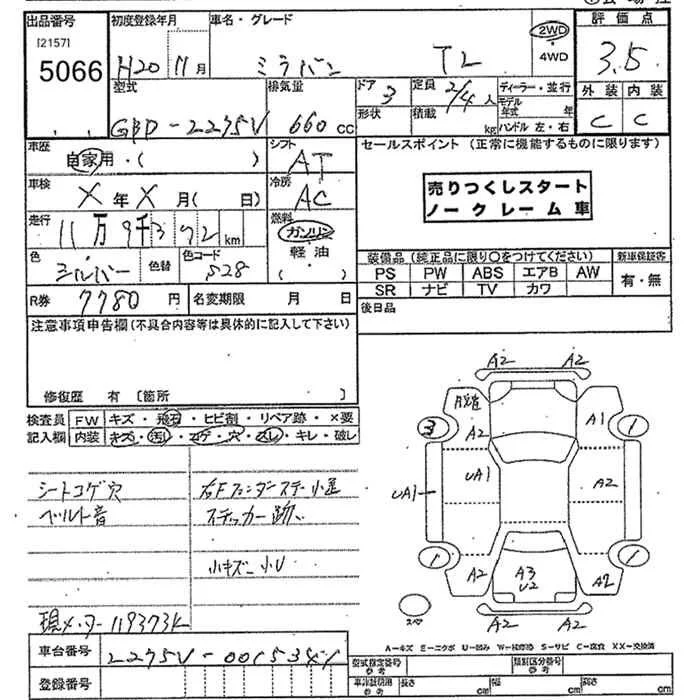 出品番号 初度登録年月 車名・グレード 評価点
[2157]
5066
H20 11月 ミラバン TL 2WD ・ 4WD 3.5
型式 排気量 ドア 3 定員 2/4人 ディーラー・並行 外装 内装
形状 積載 kg モデル年式 年 ハンドル 左・右 C C
GBD-L275V 660cc
車歴 自家用・( ) シフト AT
車検 X年X月( 日) 冷房 AC
走行 11万9千372km 燃料 ガソリン 軽油 ( )
色 シルバー 色替 色コード S28
R券 7780円 名変期限 月 日
セールスポイント (正常に機能するものに限ります)
売りつくしスタート
ノークレーム車
装備品 (純正品に限り○をつけてください) 新車保証客
PS PW ABS エアB AW 有・無
SR ナビ TV カワ
後日品
注意事項申告欄(不具合内容等は具体的に記入して下さい)
修復歴 有 〔箇所 〕
検査員 FW キズ・飛石・ヒビ割・リペア跡・×要
記入欄 内装 キズ・汚レ・コゲ・穴・スレ・キレ・破レ
シートコゲ穴
ベルト音
右Fフェンダーステー小歪
ステッカー跡
小キズ 小U
現メーター119373K
車台番号 L275V-0015341
登録番号
A2 A2
脱着 A1
3 A2 1
UA1 UA1 A2
1 1
A2 A3 U2 A2
スペア
A2 A2
A=キズ E=エクボ U=凹み W=補修跡 S=サビ C=腐食 XX=交換済
型式指定番号 参考 類別区分番号 参考
参考 長さ cm 幅 cm 高さ cm